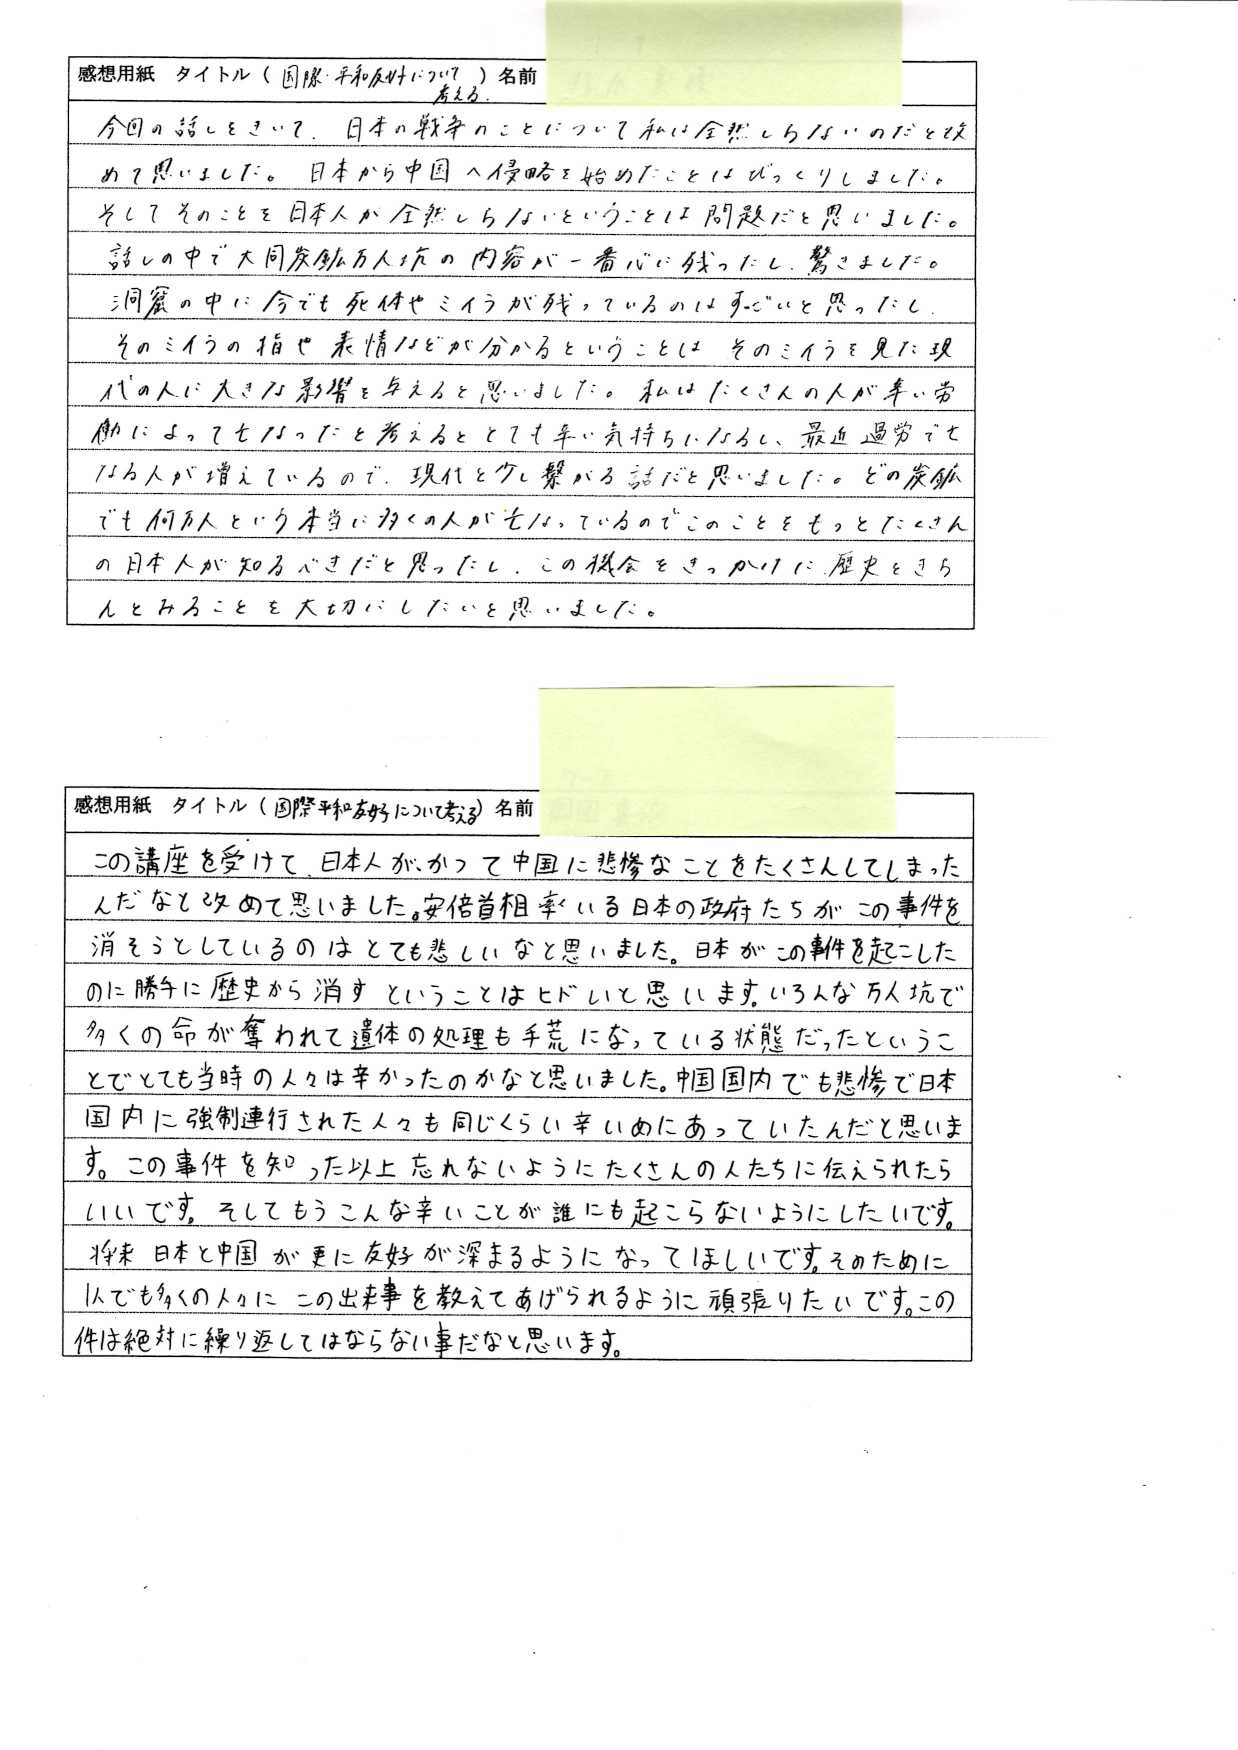 感想用紙 タイトル（国際・平和友好について考える。）名前
今回の話しをきいて、日本の戦争のことについて私は全然しらないのだと改
めて思いました。日本から中国へ侵略を始めたことはびっくりしました。
そしてそのことを日本人が全然しらないということは問題だと思いました。
話しの中で大同炭鉱万人坑の内容が一番心に残ったし、驚きました。
洞窟の中に今でも死体やミイラが残っているのはすごいと思ったし、
そのミイラの指や表情などが分かるということは そのミイラを見た現
代の人に大きな影響を与えると思いました。私はたくさんの人が辛い労
働によって亡なったと考えるととても辛い気持ちになるし、最近過労で亡
なる人が増えているので、現代と少し繋がる話だと思いました。どの炭鉱
でも何万人という本当に多くの人が亡なっているのでこのことをもっとたくさん
の日本人が知るべきだと思ったし、この機会をきっかけに歴史をきち
んとみることを大切にしたいと思いました。
感想用紙 タイトル（国際平和友好について考える）名前
この講座を受けて、日本人が、かつて中国に悲惨なことをたくさんしてしまった
んだなと改めて思いました。安倍首相率いる日本の政府たちがこの事件を
消そうとしているのはとても悲しいなと思いました。日本がこの事件を起こした
のに勝手に歴史から消すということはヒドいと思います。いろんな万人坑で
多くの命が奪われて遺体の処理も手荒になっている状態だったというこ
とでとても当時の人々は辛かったのかなと思いました。中国国内でも悲惨で日本
国内に強制連行された人々も同じくらい辛いめにあっていたんだと思いま
す。この事件を知った以上忘れないようにたくさんの人たちに伝えられたら
いいです。そしてもうこんな辛いことが誰にも起こらないようにしたいです。
将来日本と中国が更に友好が深まるようになってほしいです。そのために
1人でも多くの人々にこの出来事を教えてあげられるように頑張りたいです。この
件は絶対に繰り返してはならない事だなと思います。